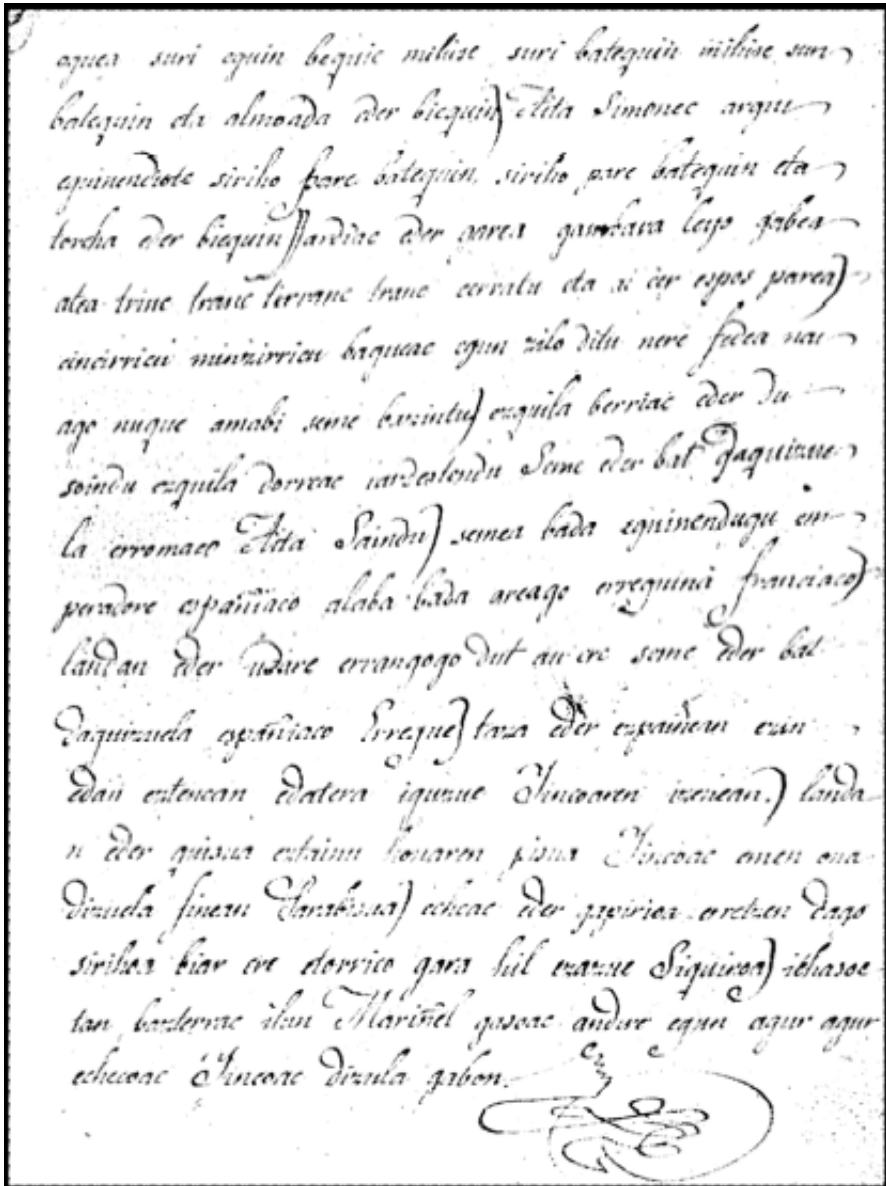 oguea suri eguin beguie mihise suri batequin mihise suri
batequin eta almoada eder biequin) Aita Simonec argui
eguinendiote siriho pare batequin, siriho pare batequin eta
torcha eder biequin) Jardiac eder garea gambara leyo gabea
atea trinc tranc tirranc tranc cerratu eta ai cer espos parea)
cincirricu minzirricu baqueac egun zilo ditu nere fedea nau
ago nuque amabi seme bazintu) ezquila berriac eder du
soindu ezquila dorreac iardestendu Seme eder bat Daquizue
la erromaco Aita Saindu) semea bada eguinendugu em
peradore españiaco alaba bada areago erreguina franciaco)
landan eder udare errangogo dut au ere seme eder bat
Daquizuela españiaco Erregue) taza eder ezpañean ezin
edan eztenean edatera iguzue Jincoaren izenean.) landa
n eder guisua eztainu honaren pisua Jincoac emen ona
dizuela finean Parabisua) echeac eder gapirioa erretzen dago
sirihoa biar ere etorrico gara hil ezazue Siquiroa) ichasoe
tan bazterrac ilun Mariñel gasoac andre egun agur agur
echecoac Jincoac dizula gabon.